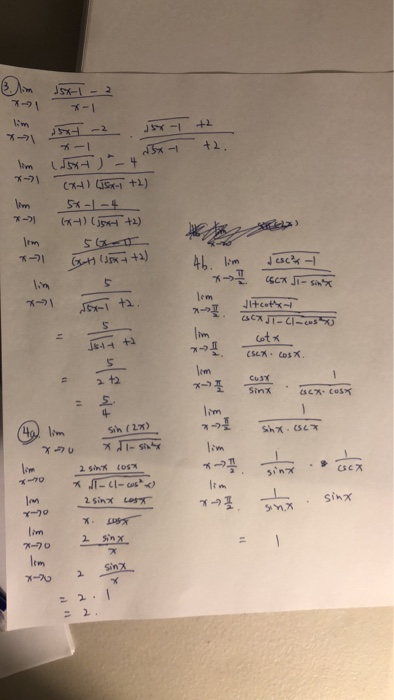 ③ lim x→1 √(5x-1) - 2 / x-1
lim x→1 √(5x-1) - 2 / x-1 · √(5x-1) + 2 / √(5x-1) + 2.
lim x→1 (√(5x-1))² - 4 / (x-1)(√(5x-1) + 2)
lim x→1 5x-1-4 / (x-1)(√(5x-1) + 2)
lim x→1 5(x-1) / (x-1)(√(5x-1) + 2)
lim x→1 5 / √(5x-1) + 2.
= 5 / √(5·1-1) + 2
= 5 / 2+2
= 5 / 4
4a. lim x→0 sin(2x) / x√(1-sin²x)
lim x→0 2 sinx cosx / x√(1-(1-cos²x))
lim x→0 2 sinx cosx / x · cosx
lim x→0 2 sinx / x
lim x→0 2 sinx / x
= 2 · 1
= 2.
4b. lim x→π/2 √(csc²x - 1) / cscx √(1-sin²x)
lim x→π/2. √(1+cot²x-1) / cscx √(1-(1-cos²x))
lim x→π/2. cotx / cscx · cosx.
lim x→π/2 cosx / sinx · 1 / cscx · cosx
lim x→π/2 1 / sinx · cscx
lim x→π/2. 1 / sinx · 1 / cscx
lim x→π/2. 1 / sinx · sinx
= 1